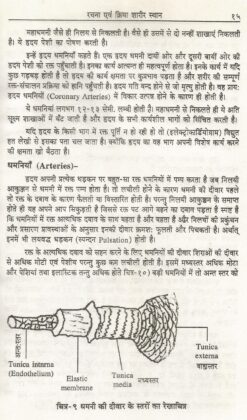 रचना एवं क्रिया शारीर स्थान १५
महाधमनी वैसे ही निलय से निकलती है। वैसे ही उसमें से दो नन्हीं शाखाएं निकलती
हैं। ये हृदय पेशी का पोषण करती हैं।
इन्हें हृदय धमनियां कहते हैं। एक हृदय धमनी दायीं ओर और दूसरी बायीं ओर की
हृदय पेशी को रक्त पहुँचाती है। इनका कार्य अत्यन्त ही महत्वपूर्ण होता है। इनके कार्य में यदि
कुछ गड़बड़ होती है तो हृदय की कार्य क्षमता पर कुप्रभाव पड़ता है और शरीर की सम्पूर्ण
रक्त-संचालन प्रक्रिया को हानि पहुँचती है। हृदय गति बन्द होने से जो मृत्यु होती है। वह प्रायः
हृदय धमनियों (Coronary Arteries) में विकार उत्पन्न होने के कारण ही होती है।
ये धमनियां लगभग १२-१३ सेमी. लम्बी होती हैं। महाधमनी से निकलते ही ये अति
सूक्ष्म शाखाओं में बँट जाती हैं और हृदय के सभी कार्यशील भागों को सिंचित करती हैं।
यदि हृदय के किसी भाग में रक्त पूर्ति न हो रही हो तो (इलेक्ट्रोकार्डियोग्राम) विद्युत
हृत लेखी से इसका पता चल जाता है। क्योंकि हृदय का वह भाग अपनी विशेष कार्य करने
की क्षमता खो बैठता है।
धमनियाँ (Arteries)–
हृदय अपनी प्रत्येक धड़कन पर बहुत-सा रक्त धमनियों में पम्प करता है जब निलयी
आकुञ्चन से धमनी में रक्त पम्प होता है। तो लचीली होने के कारण धमनी की दीवार पहले
तो रक्त के दबाव के कारण फैलती या विस्तारित होती है। परन्तु निलयी आकुञ्चन के समाप्त
होते ही वह अपने आप सिकुड़ती है जिससे रक्त पट आगे बहने का दबाव पड़ता है स्पष्ट है
कि धमनियों में रक्त अत्यधिक दबाव के साथ बहता है और बहता है और निलयों की प्रकुंचन
और प्रसारण प्रावस्थाओं के अनुसार इनकी दीवार क्रमशः फूलती और पिचकती है। अर्थात्
इनमें भी लयबद्ध धड़कन (स्पन्दर Pulsation) होती है।
रक्त के अत्यधिक दबाव को सहन करने के लिए धमनियों की दीवार शिराओं की दीवार
से अधिक मोटी एवं पेशीय परन्तु कुछ कम लचीली होती है। इसमें मध्यस्तर अधिक मोटा
और पेशियां तथा इलास्टिक तन्तु अधिक होते चित्र-१०) बड़ी धमनियों में तो अन्तः स्तर को
अन्तःस्तर
Tunica intarna
(Endothelium)
Elastic
membrane
Tunica
media मध्यस्तर
Tunica
externa
बाह्यस्तर
चित्र-९ धमनी की दीवार के स्तरों का रेखाचित्र